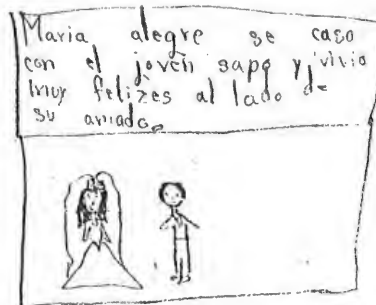 Maria alegre se caso
con el joven sapo y vivio
muy felizes al lado de
su amado.